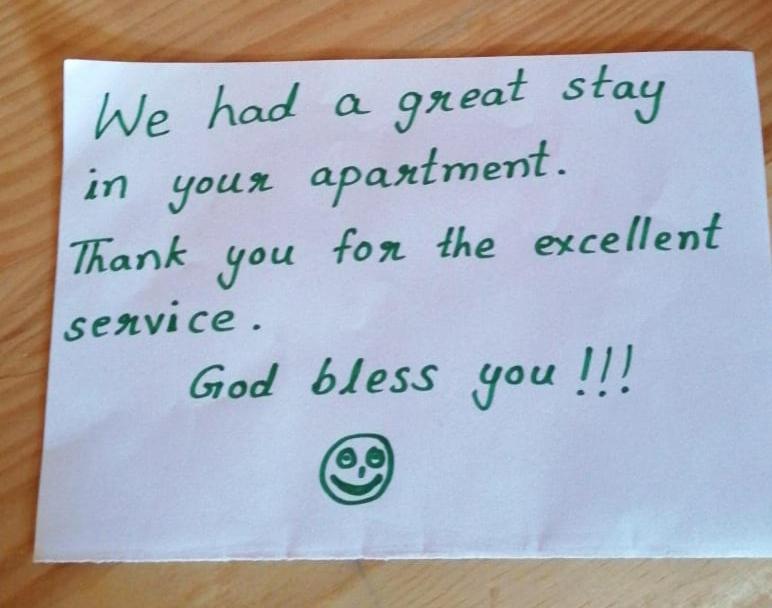 We had a great stay
in your apartment.
Thank you for the excellent
service.
God bless you !!!